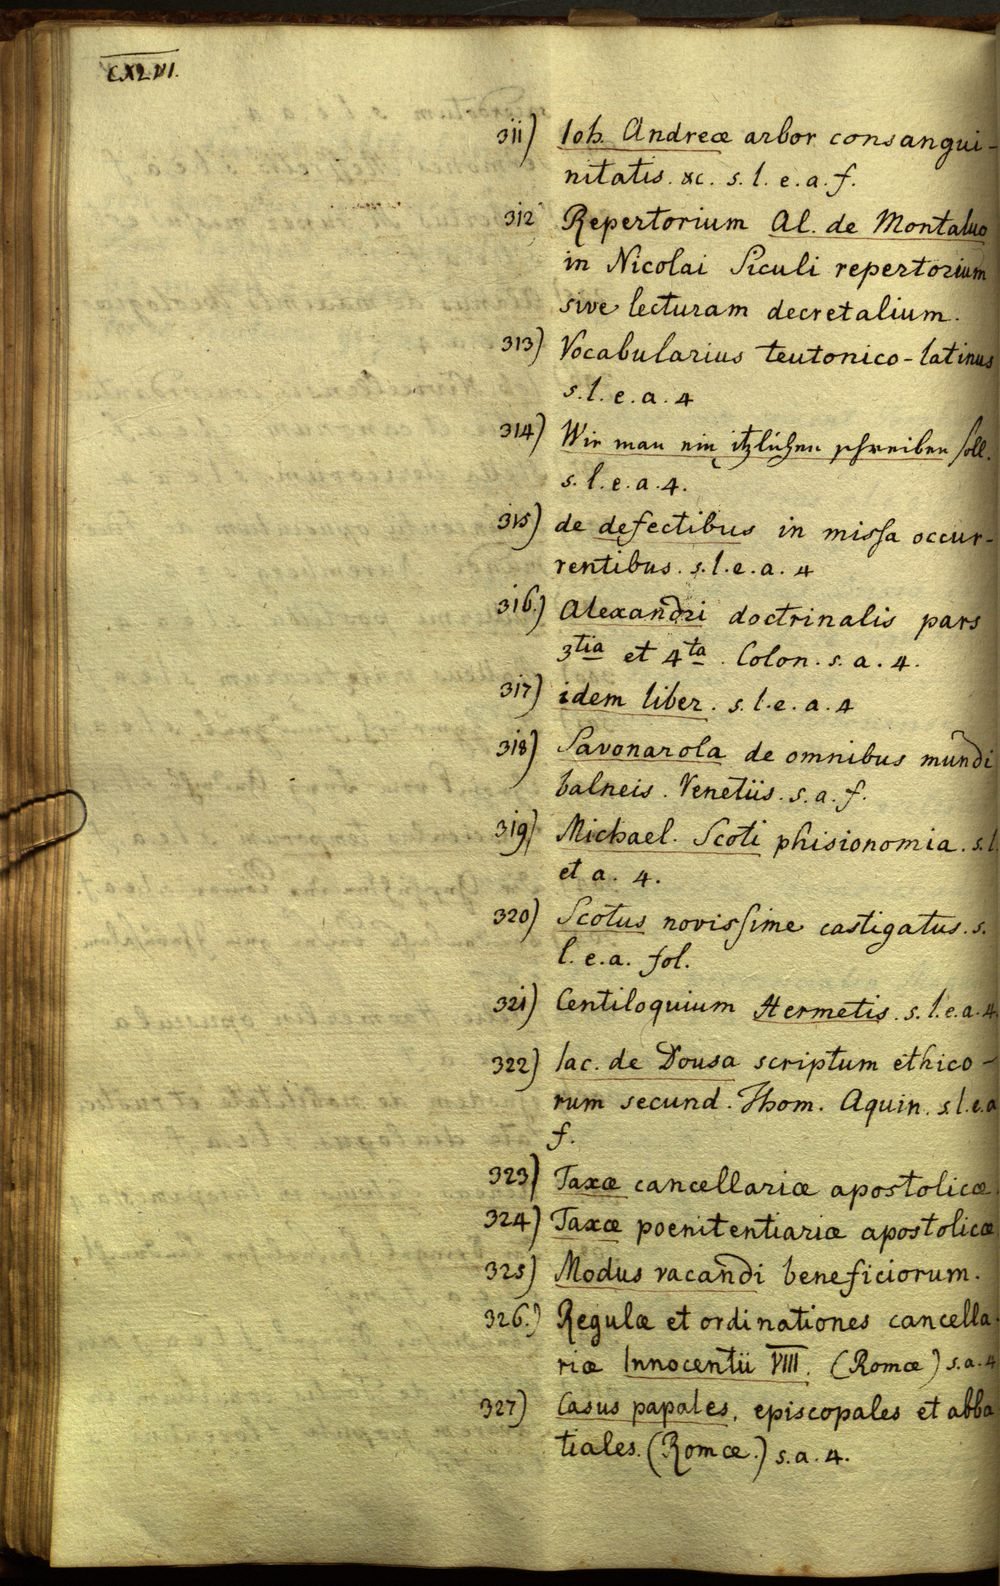 CXLVI.
311) Ioh. Andreæ arbor consangui-
nitatis. &c. s. l. e. a. f.
312 Repertorium Al. de Montaluo
in Nicolai Siculi repertorium
sive lecturam decretalium.
313) Vocabularius teutonico-latinus
s. l. e. a. 4
314) Wie man ein itzlichen schreiben soll.
s. l. e. a. 4.
315) de defectibus in missa occur-
rentibus. s. l. e. a. 4
316.) Alexandri doctrinalis pars
3tia et 4ta. Colon. s. a. 4.
317) idem liber. s. l. e. a. 4
318) Savonarola de omnibus mundi
balneis. Venetiis. s. a. f.
319) Michael. Scoti phisionomia. s. l.
et a. 4.
320) Scotus novissime castigatus. s.
l. e. a. fol.
321) Centiloquium Hermetis. s. l. e. a. 4.
322) Iac. de Dousa scriptum ethico-
rum secund. Thom. Aquin. s. l. e. a
f.
323) Taxæ cancellariæ apostolicæ
324) Taxæ poenitentiariæ apostolicæ
325) Modus vacandi beneficiorum.
326.) Regulæ et ordinationes cancella-
riæ Innocentii VIII. (Romæ) s. a. 4
327) Casus papales, episcopales et abba
tiales. (Romæ.) s. a. 4.